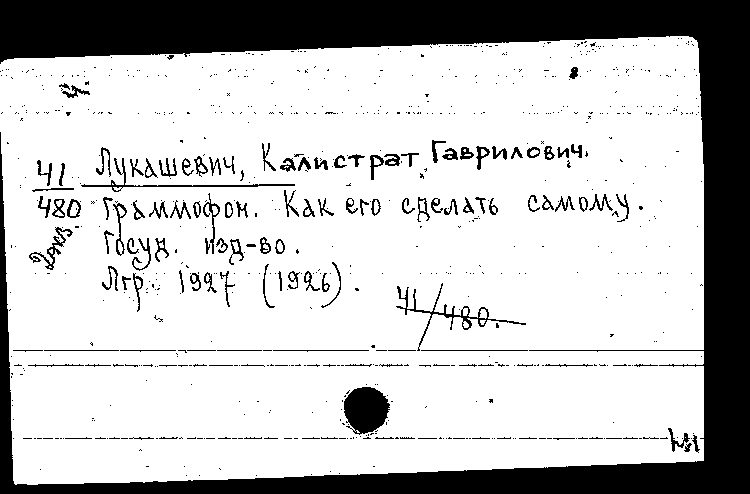 41 Лукашевич, Калистрат Гаврилович.
480 Граммофон. Как его сделать самому.
2 экз. Госуд. изд-во.
Лгр. 1927 (1926).
41/480.